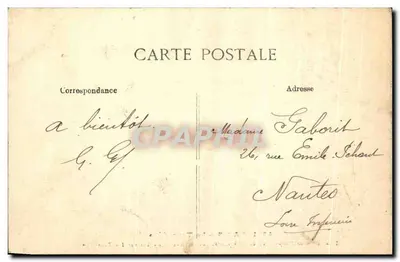 CARTE POSTALE
Correspondance
Adresse
a bientôt
G. Gf
Madame Gaborit
26, rue Emile Péhant
Nantes
Loire Inférieure
CPAPHIL